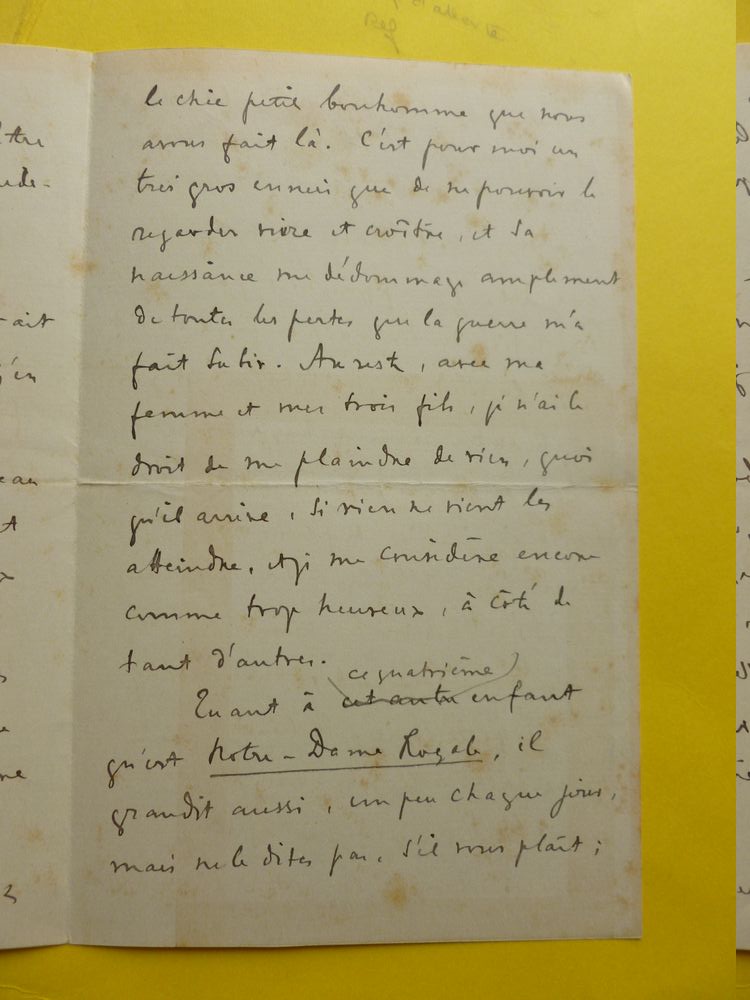 le chic petit bonhomme que nous
avons fait là. C'est pour moi un
très gros ennui que de ne pouvoir le
regarder vivre et croître, et sa
naissance me dédommage amplement
de toutes les pertes que la guerre m'a
fait subir. Au reste, avec ma
femme et mes trois fils, je n'ai le
droit de me plaindre de rien, quoi
qu'il arrive, si rien ne vient les
atteindre, et je me considère encore
comme trop heureux, à côté de
tant d'autres.
ce quatrième
Quant à cet autre enfant
qu'est Notre-Dame Royale, il
grandit aussi, un peu chaque jour,
mais ne le dites pas, s'il vous plaît ;